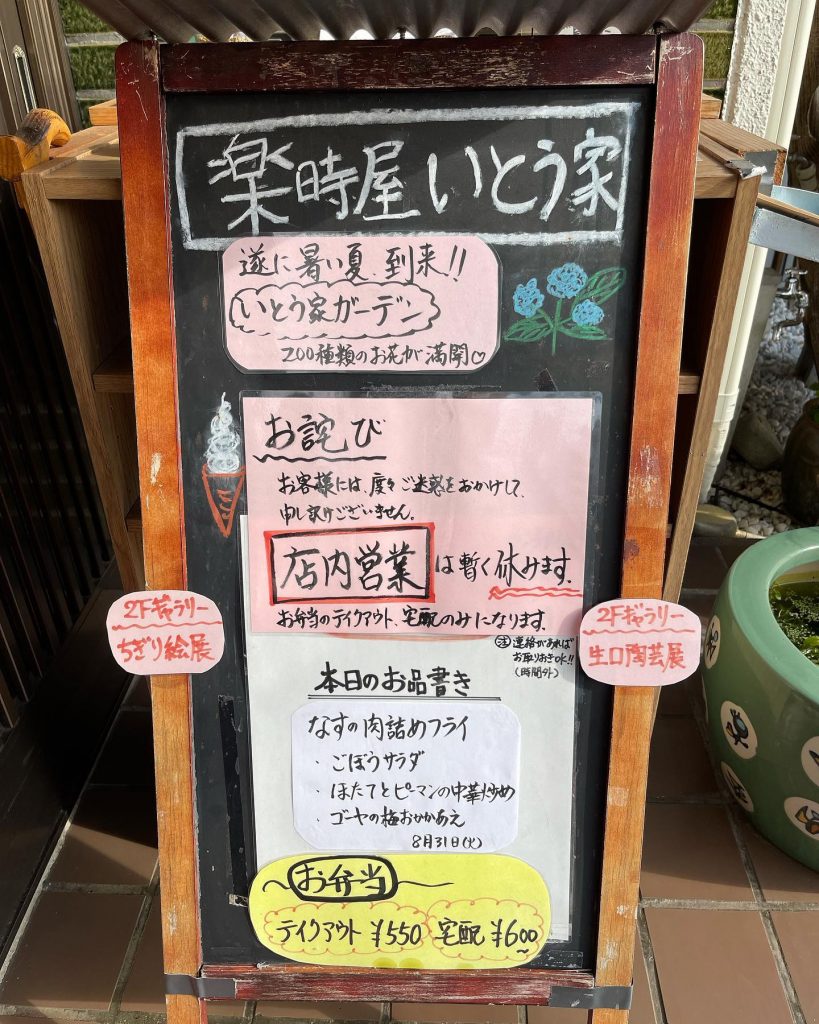 楽時屋 いとう家
遂に暑い夏、到来!!
いとう家ガーデン
200種類のお花が満開♡
お詫び
お客様には、度々ご迷惑をおかけして、
申し訳ございません。
店内営業は暫く休みます。
お弁当のテイクアウト、宅配のみになります。
㊟連絡があれば
お取りおきOK!!
(時間外)
2Fギャラリー
ちぎり絵展
2Fギャラリー
生口陶芸展
本日のお品書き
なすの肉詰めフライ
・ごぼうサラダ
・ほたてとピーマンの中華炒め
・ゴーヤの梅おかかあえ
8月31日(火)
お弁当
テイクアウト ¥550 宅配 ¥600~